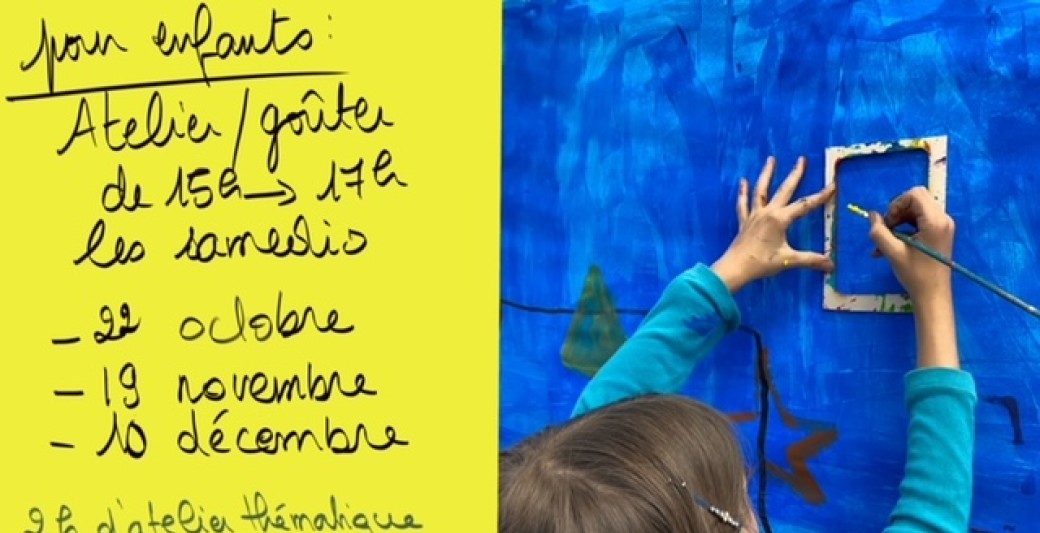 pour enfants:
Atelier/goûter
de 15h → 17h
les samedis
- 22 octobre
- 19 novembre
- 10 décembre
2h d'atelier thématique